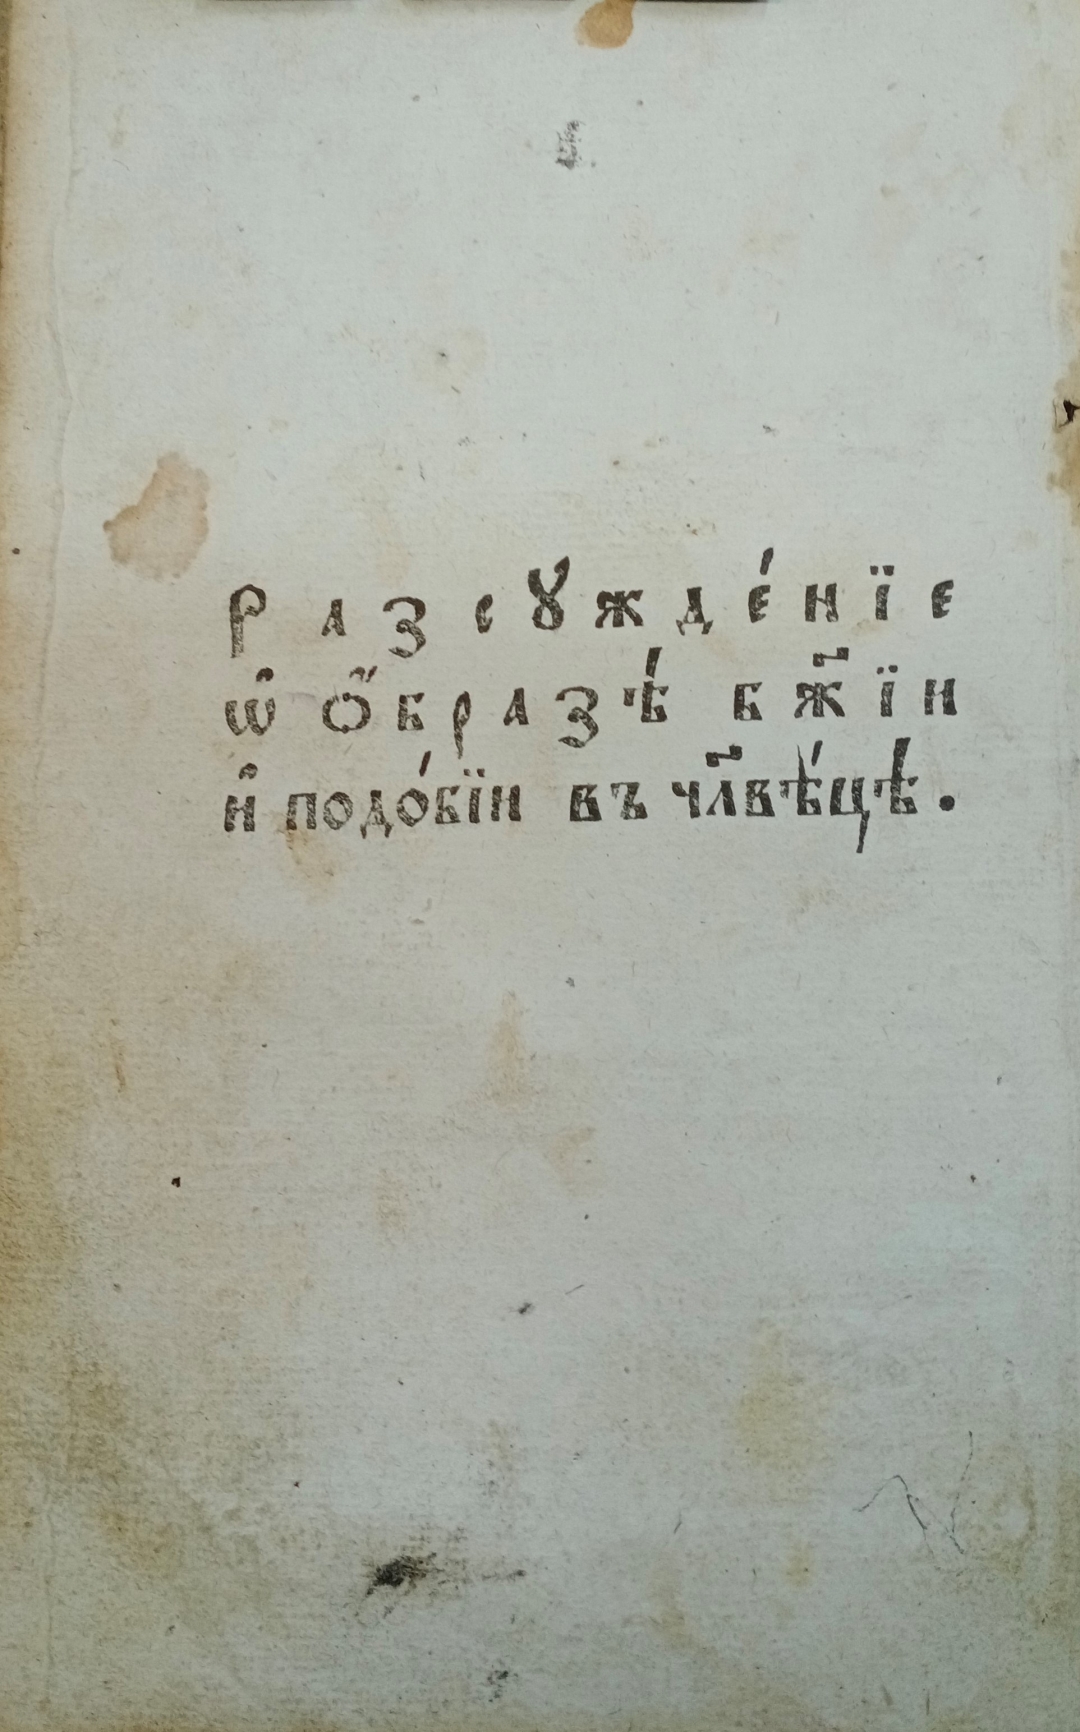 Разсꙋжде́нїе
ѡ҆ ѻ҆́бразѣ́ бж҃їи
и҆ подо́бїи въ чл҃вѣ́цѣ.